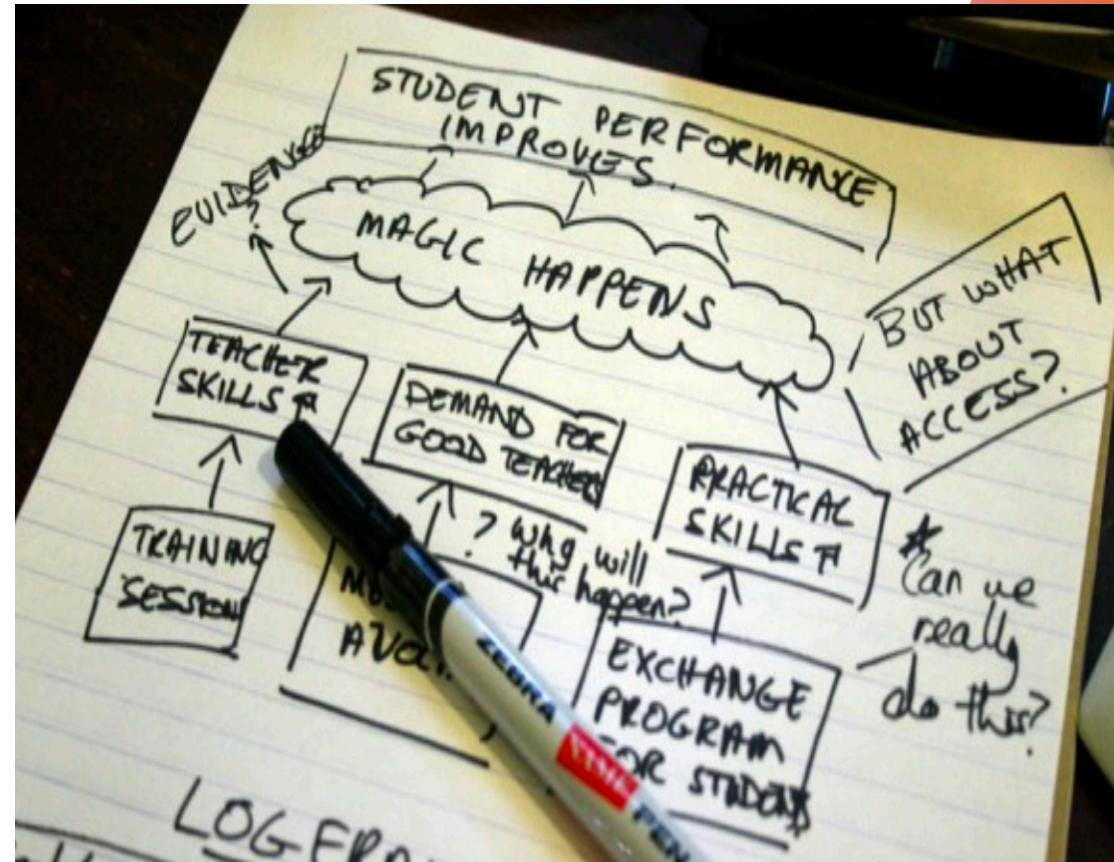 STUDENT PERFORMANCE
IMPROVES.
EVIDENCE
?
MAGIC HAPPENS
BUT WHAT
ABOUT
ACCESS?
TEACHER
SKILLS
DEMAND FOR
GOOD TEACHERS
PRACTICAL
SKILLS
TRAINING
SESSION
? Why will
this happen?
EXCHANGE
PROGRAM
FOR STUDENTS
Can we
really
do this?
ZEBRA
PEN